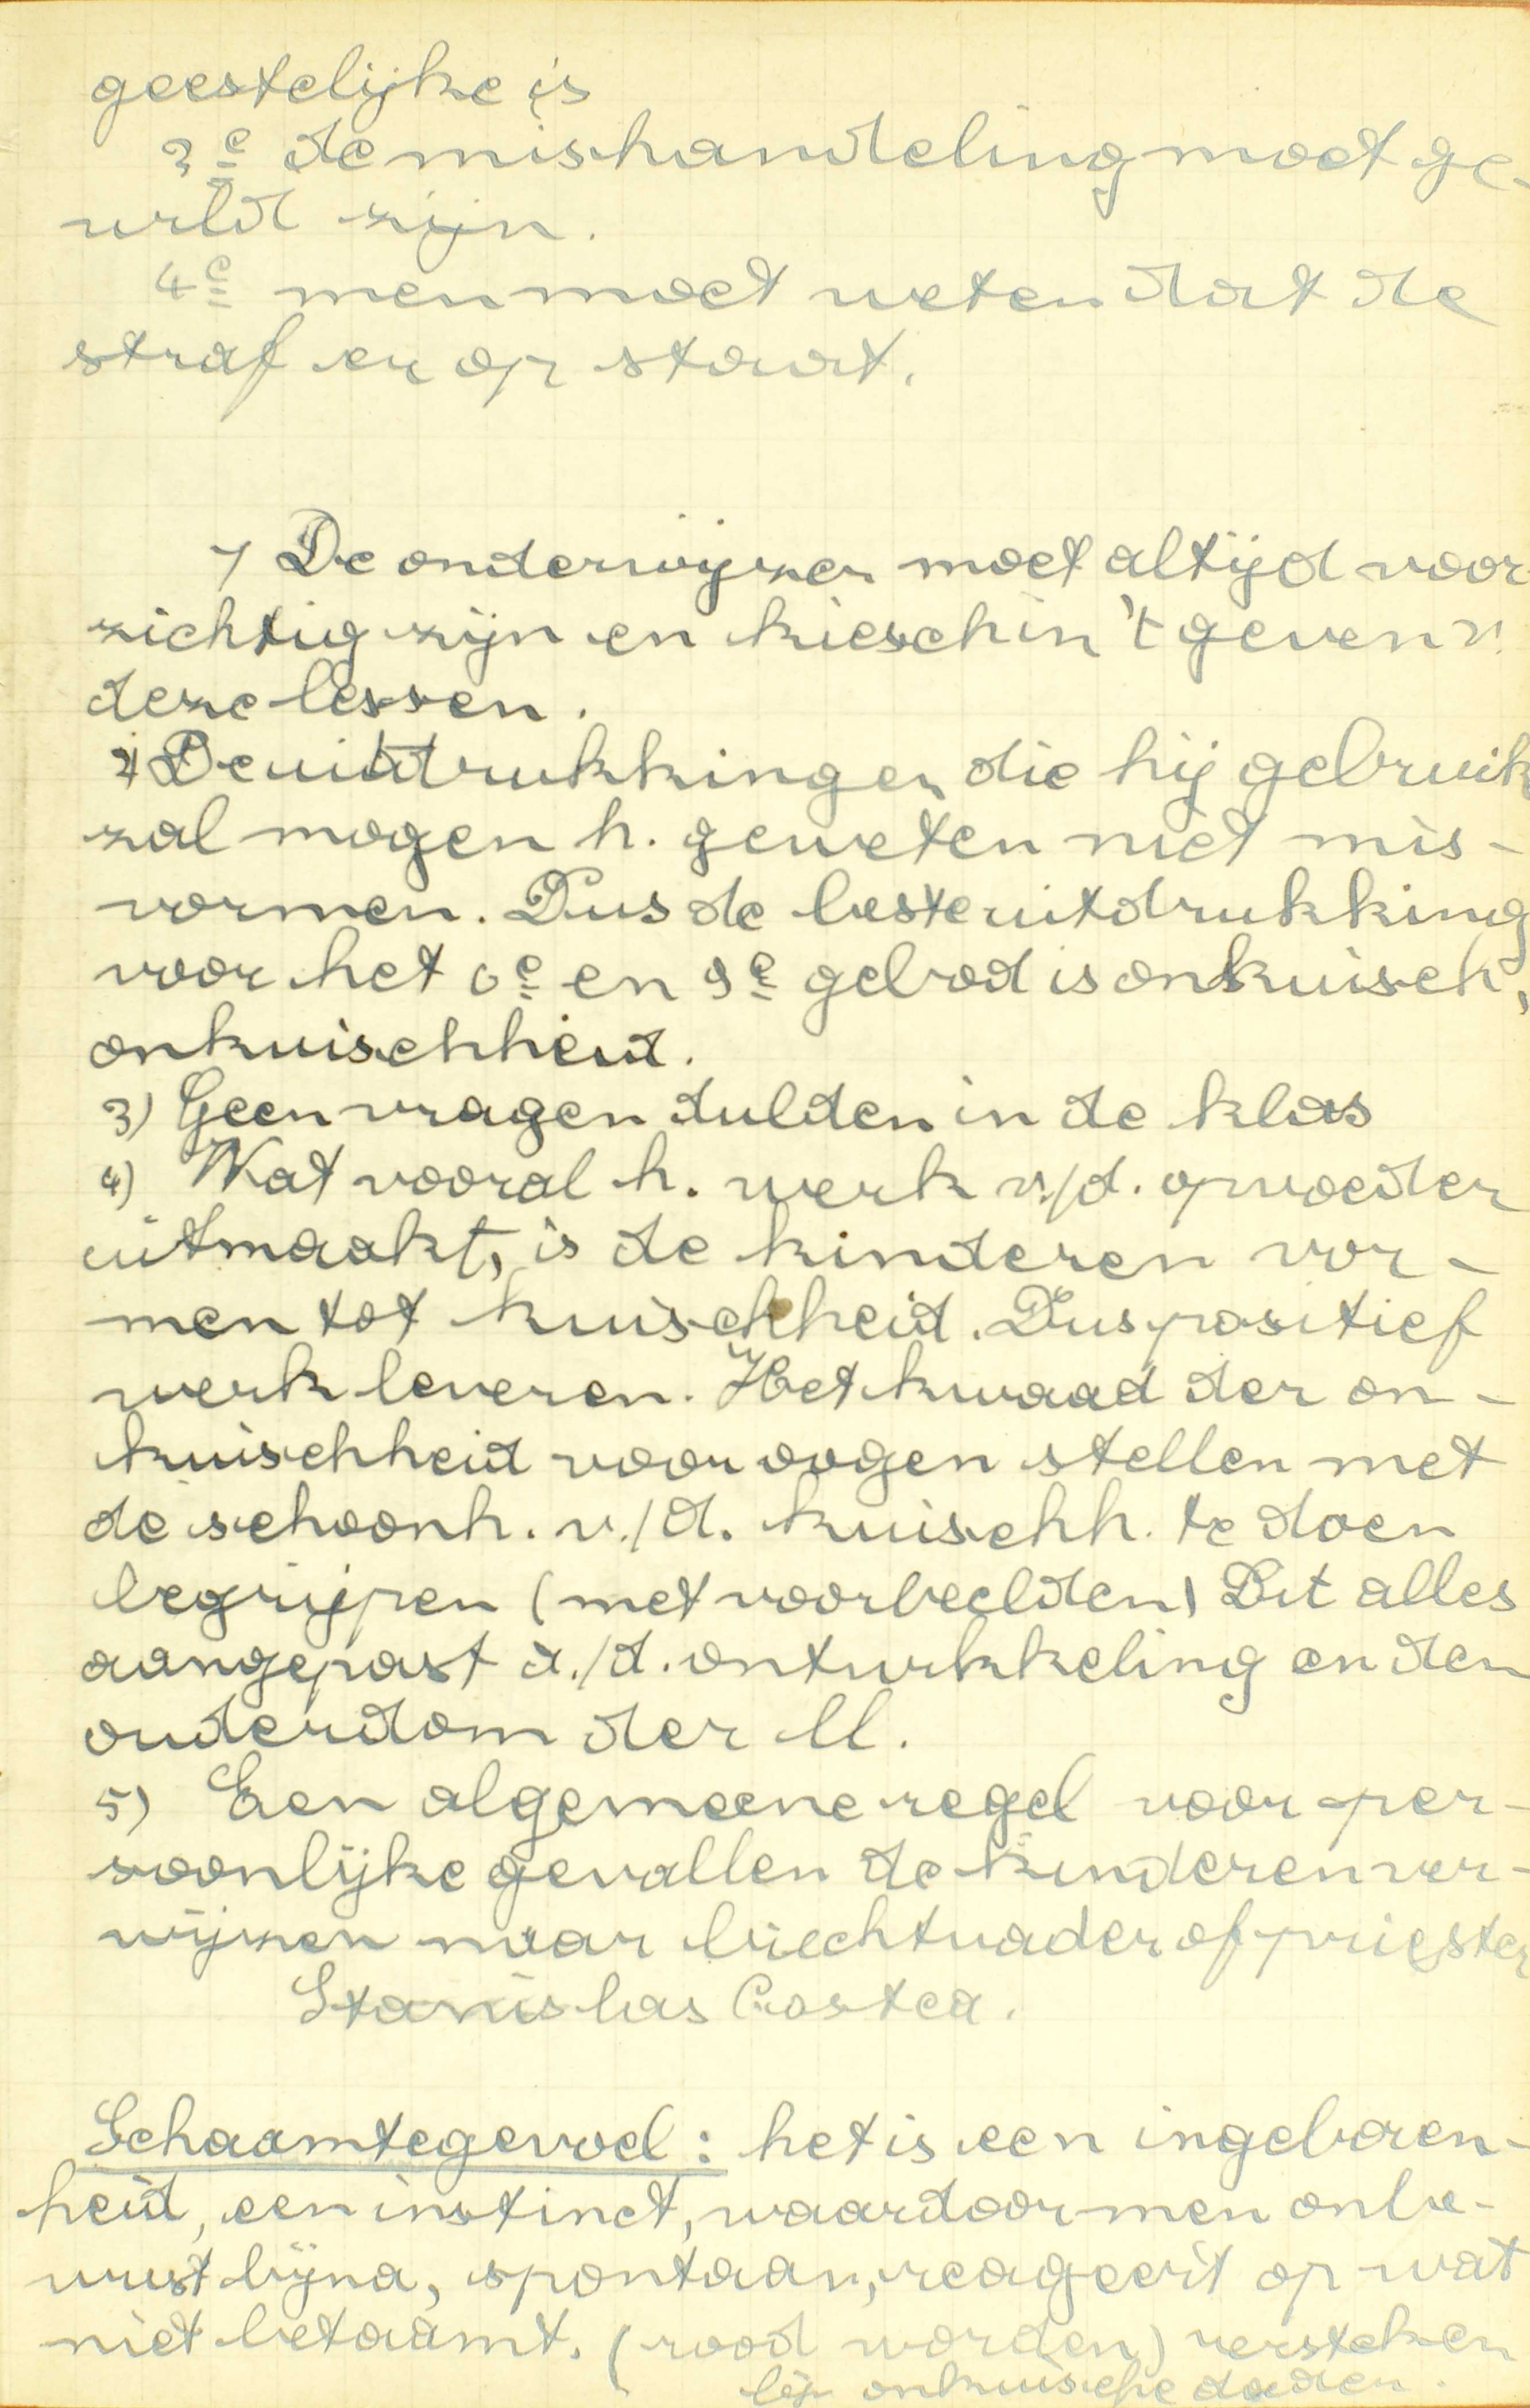 geestelijke is
3e de mishandeling moet ge-
wild zijn.
4e men moet weten dat de
straf er op staat.
1) De onderwijzer moet altijd voor-
zichtig zijn en kiesch in 't geven v.
deze lessen.
2) De uitdrukkingen die hij gebruik
zal mogen h. geweten niet mis-
vormen. Dus de beste uitdrukking
voor het 6e en 9e gebod is onkuisch,
onkuischheid.
3) Geen vragen dulden in de klas
4) Wat vooral h. werk v./d. opvoeder
uitmaakt, is de kinderen vor-
men tot kuischheid. Dus positief
werk leveren. Het kwaad der on-
kuischheid voor oogen stellen met
de schoonh. v./d. kuischh. te doen
begrijpen (met voorbeelden) Dit alles
aangepast a./d. ontwikkeling en den
ouderdom der ll.
5) Een algemeene regel voor per-
soonlijke gevallen de kinderen ver-
wijzen naar biechtvader of priester
Stanislas Costca.
Schaamtegevoel : het is een ingeboren-
heid, een instinct, waardoor men onbe-
wust bijna, spontaan, reageert op wat
niet betaamt. (rood worden) versteken
bij onkuische daden.